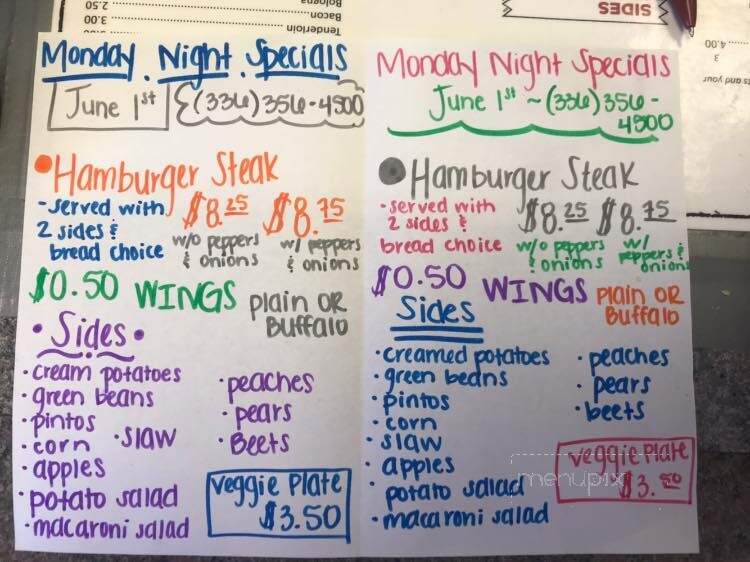 Bologna
Bacon 2.50
Tenderloin 3.00
SIDES
4.00
3
Monday Night Specials
June 1st (336) 356-4500
Hamburger Steak
-served with 2 sides & bread choice
$8.25 $8.75
w/o peppers & onions
w/ peppers & onions
$0.50 WINGS Plain OR Buffalo
• Sides •
• cream potatoes
• green beans
• pintos
• corn
• slaw
• apples
• potato salad
• macaroni salad
• peaches
• pears
• Beets
veggie Plate
$3.50
Monday Night Specials
June 1st ~ (336) 356-
4500
• Hamburger Steak
• served with 2 sides & bread choice
$8.25 $8.75
w/o peppers & onions
w/ peppers & onions
$0.50 WINGS Plain OR Buffalo
Sides
• creamed potatoes
• green beans
• pintos
• corn
• slaw
• apples
• potato salad
• macaroni salad
• peaches
• pears
• beets
veggie Plate
$3.50
menupix